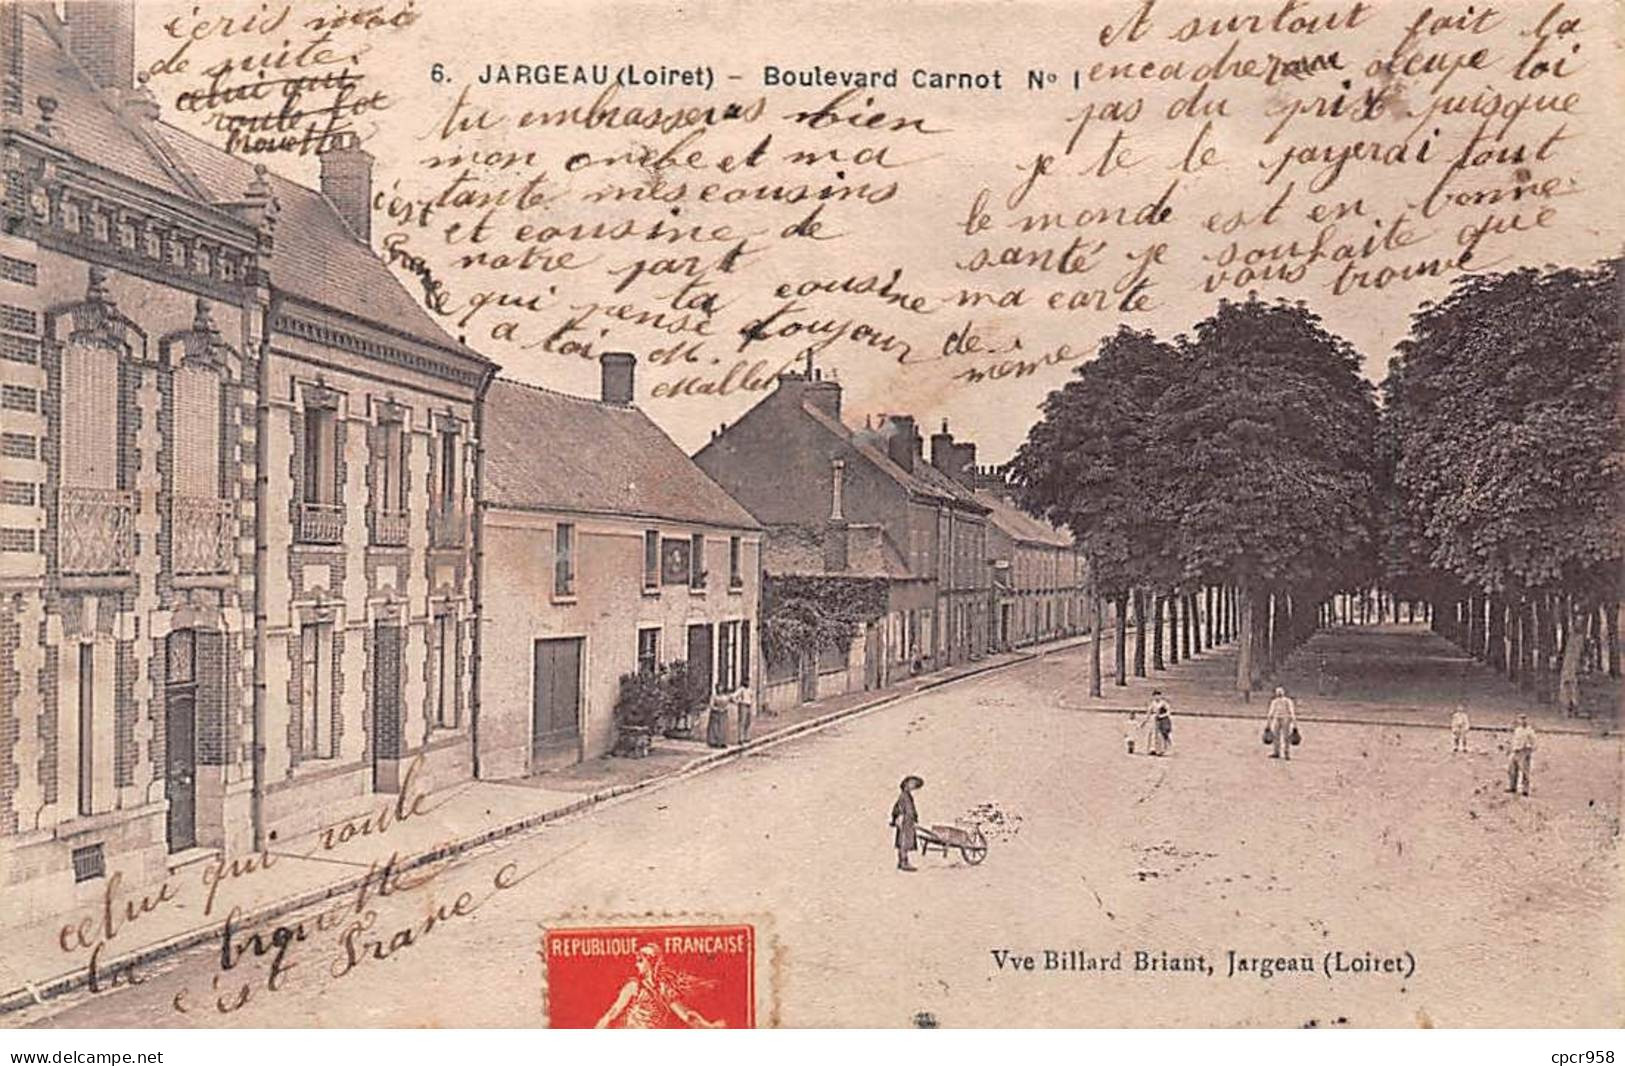 6. JARGEAU (Loiret) - Boulevard Carnot Nº 1
écris moi
de suite.
celui qui
roule la
brouette
c'est
France
tu embrasseras bien
mon oncle et ma
tante mes cousins
et cousine de
notre part
ta cousine
qui pense toujour
a toi M.
Mallet
Et surtout fait la
encadrer occupe toi
pas du prix puisque
je te le payerai tout
le monde est en bonne
santé je souhaite que
ma carte vous trouve
de
même
17
celui qui roule
la brouette
c'est France
REPUBLIQUE FRANÇAISE
Vve Billard Briant, Jargeau (Loiret)
delcampe.net
cpcr958